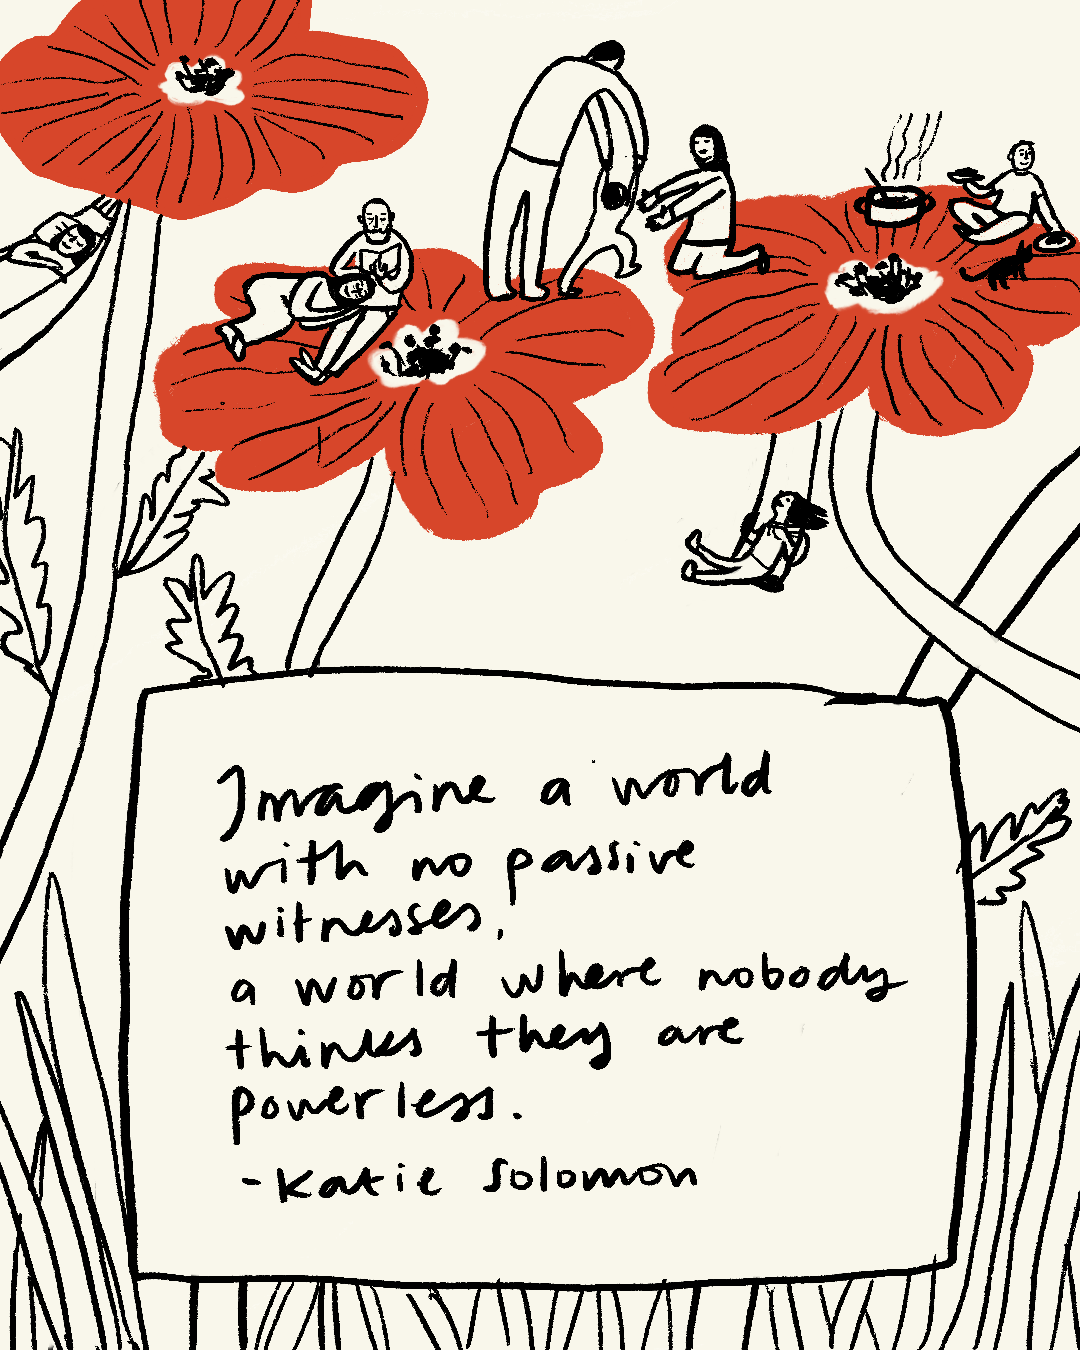 Imagine a world
with no passive
witnesses,
a world where nobody
thinks they are
powerless.
- Katie Solomon